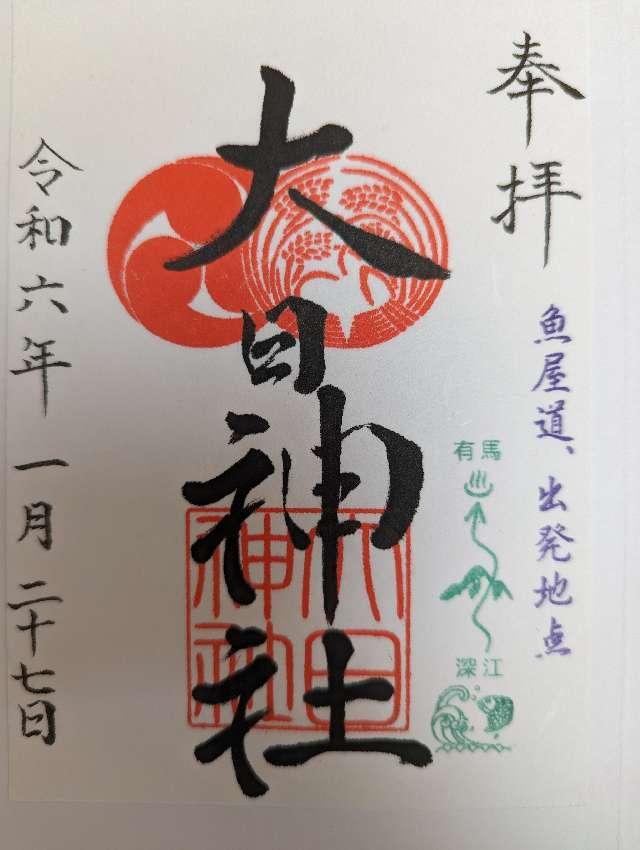 奉拝
魚屋道、出発地点
有馬
深江
大日神社
大日神社
令和六年一月二十七日